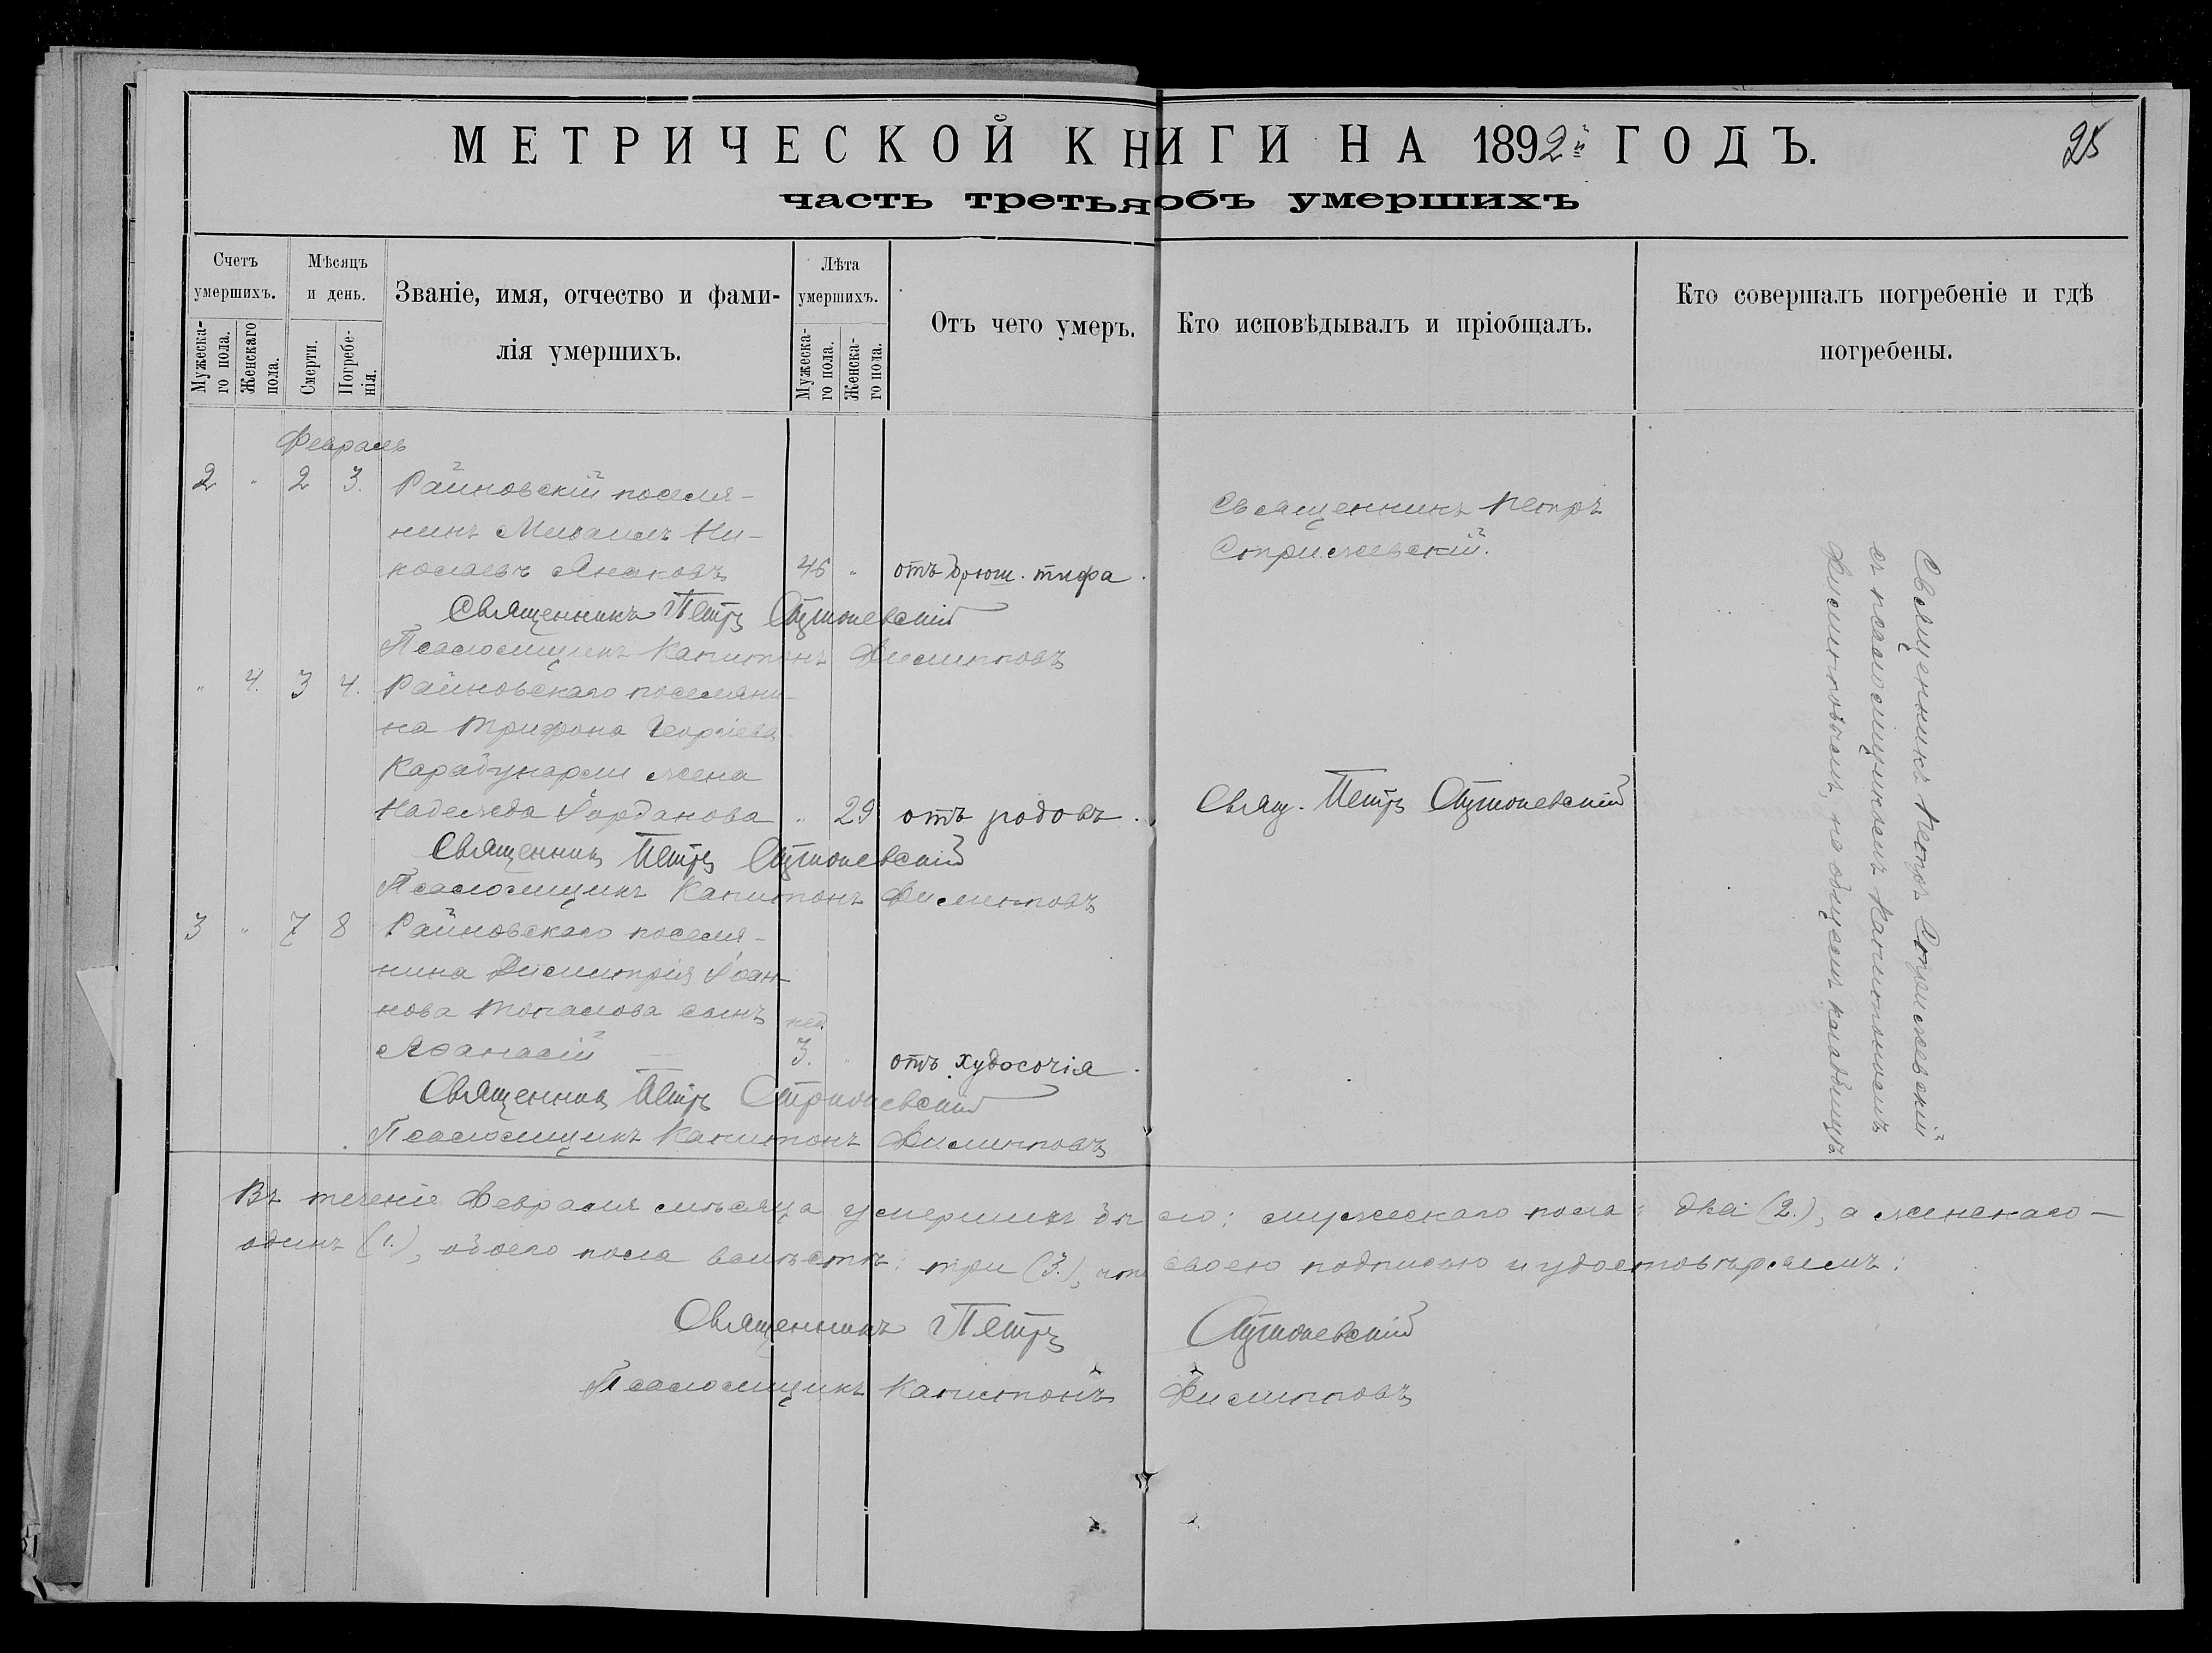 МЕТРИЧЕСКОЙ КНИГИ НА 1892й ГОДЪ.
25
часть третья объ умершихъ
Счетъ умершихъ.
Мужеска-го пола.
Женскаго пола.
Мѣсяцъ и день.
Смерти.
Погребе-нія.
Званіе, имя, отчество и фами-
лія умершихъ.
Лѣта умершихъ.
Мужеска-го пола.
Женска-го пола.
Отъ чего умеръ.
Кто исповѣдывалъ и пріобщалъ.
Кто совершалъ погребеніе и гдѣ
погребены.
Февраль
2 " 2 3. Райновскій поселя-
нинъ Михаилъ Ни-
колаевъ 46 " отъ брюш. тифа.
Священникъ Петръ
Священникъ Петръ
Псаломщикъ Капитонъ Филипповъ
" 4. 3 4. Райновскаго поселяни-
на Трифона Георгіева
Карабунарли жена
Надежда Іорданова " 29 отъ родовъ.
Свящ. Петръ
Священникъ Петръ
Псаломщикъ Капитонъ Филипповъ
3 " 7 8 Райновскаго поселя-
нина Димитрія Іоан-
нова Топалова сынъ нед.
Аѳанасій 3. " отъ худосочія.
Священникъ Петръ
Псаломщикъ Капитонъ Филипповъ
Священникъ Петръ
съ псаломщикомъ Капитономъ
Филипповымъ, на общемъ кладбищѣ
Въ теченіе Февраля мѣсяца умершихъ было: мужескаго пола: два (2.), а женскаго —
одинъ (1.), обоего пола вмѣстѣ: три (3.), что своею подписью и удостовѣряемъ:
Священникъ Петръ
Псаломщикъ Капитонъ Филипповъ